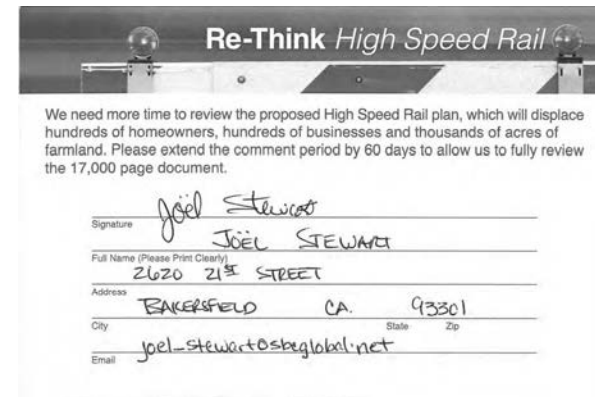 Re-Think High Speed Rail
We need more time to review the proposed High Speed Rail plan, which will displace
hundreds of homeowners, hundreds of businesses and thousands of acres of
farmland. Please extend the comment period by 60 days to allow us to fully review
the 17,000 page document.
Joël Stewart
Signature
JOËL STEWART
Full Name (Please Print Clearly)
2620 21ST STREET
Address
BAKERSFIELD CA. 93301
City State Zip
joel_stewart@sbcglobal.net
Email